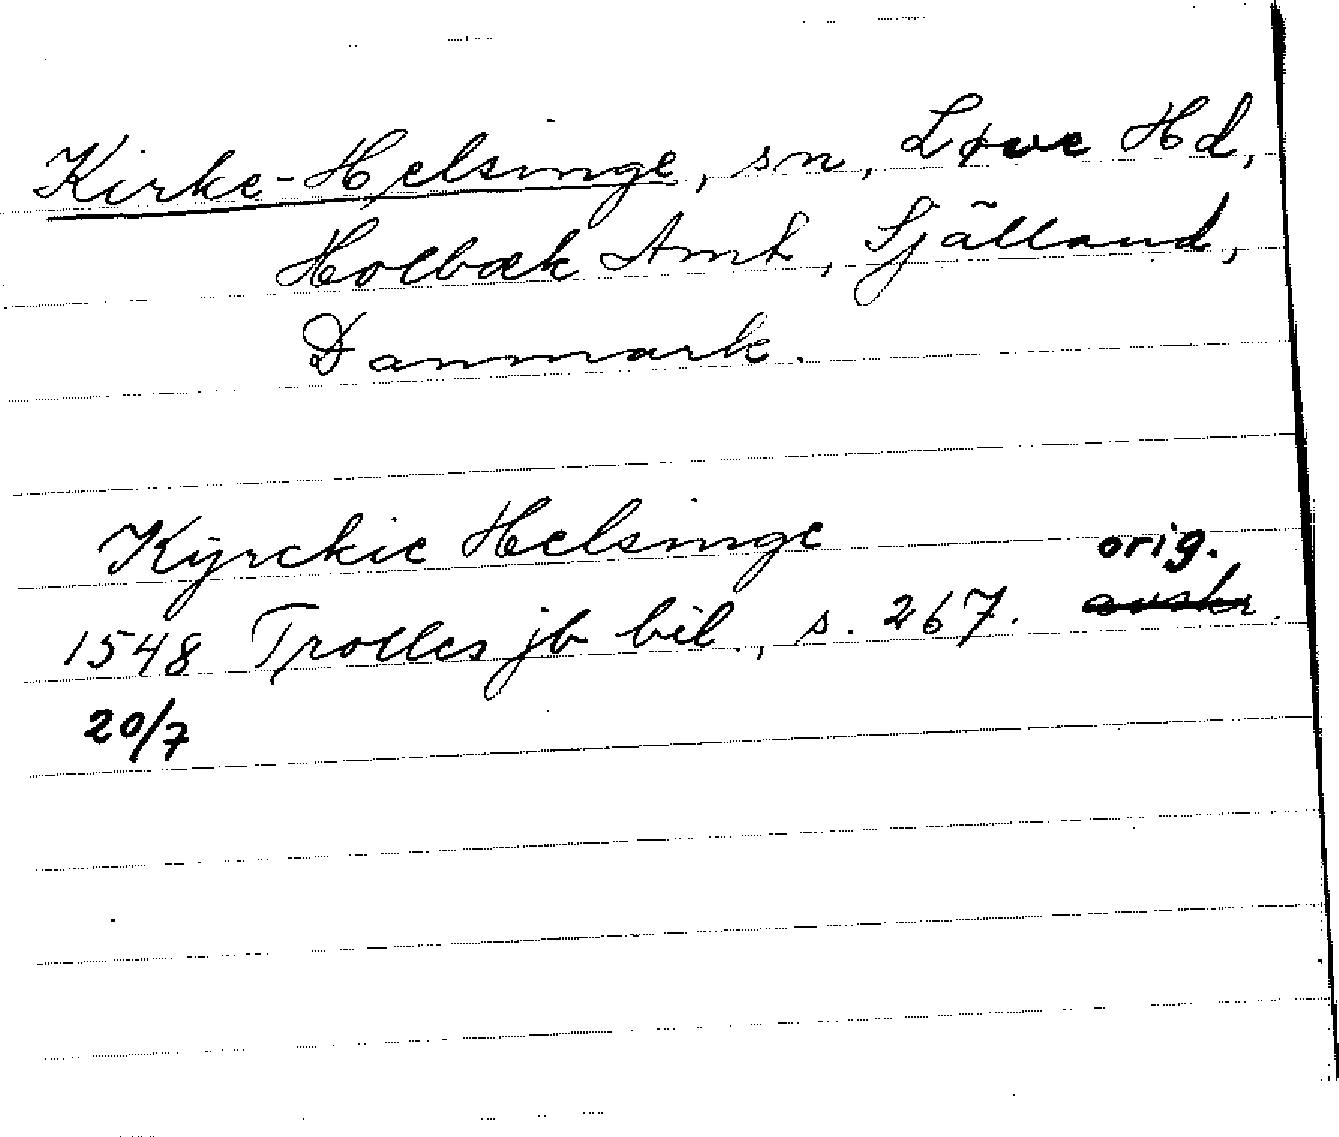 Kirke-Helsinge, sn, Løve Hd,
Holbæk Amt, Själland,
Danmark.
Kyrckie Helsinge
orig.
1548 Trolles jb bil., s. 267. avskr.
20/7